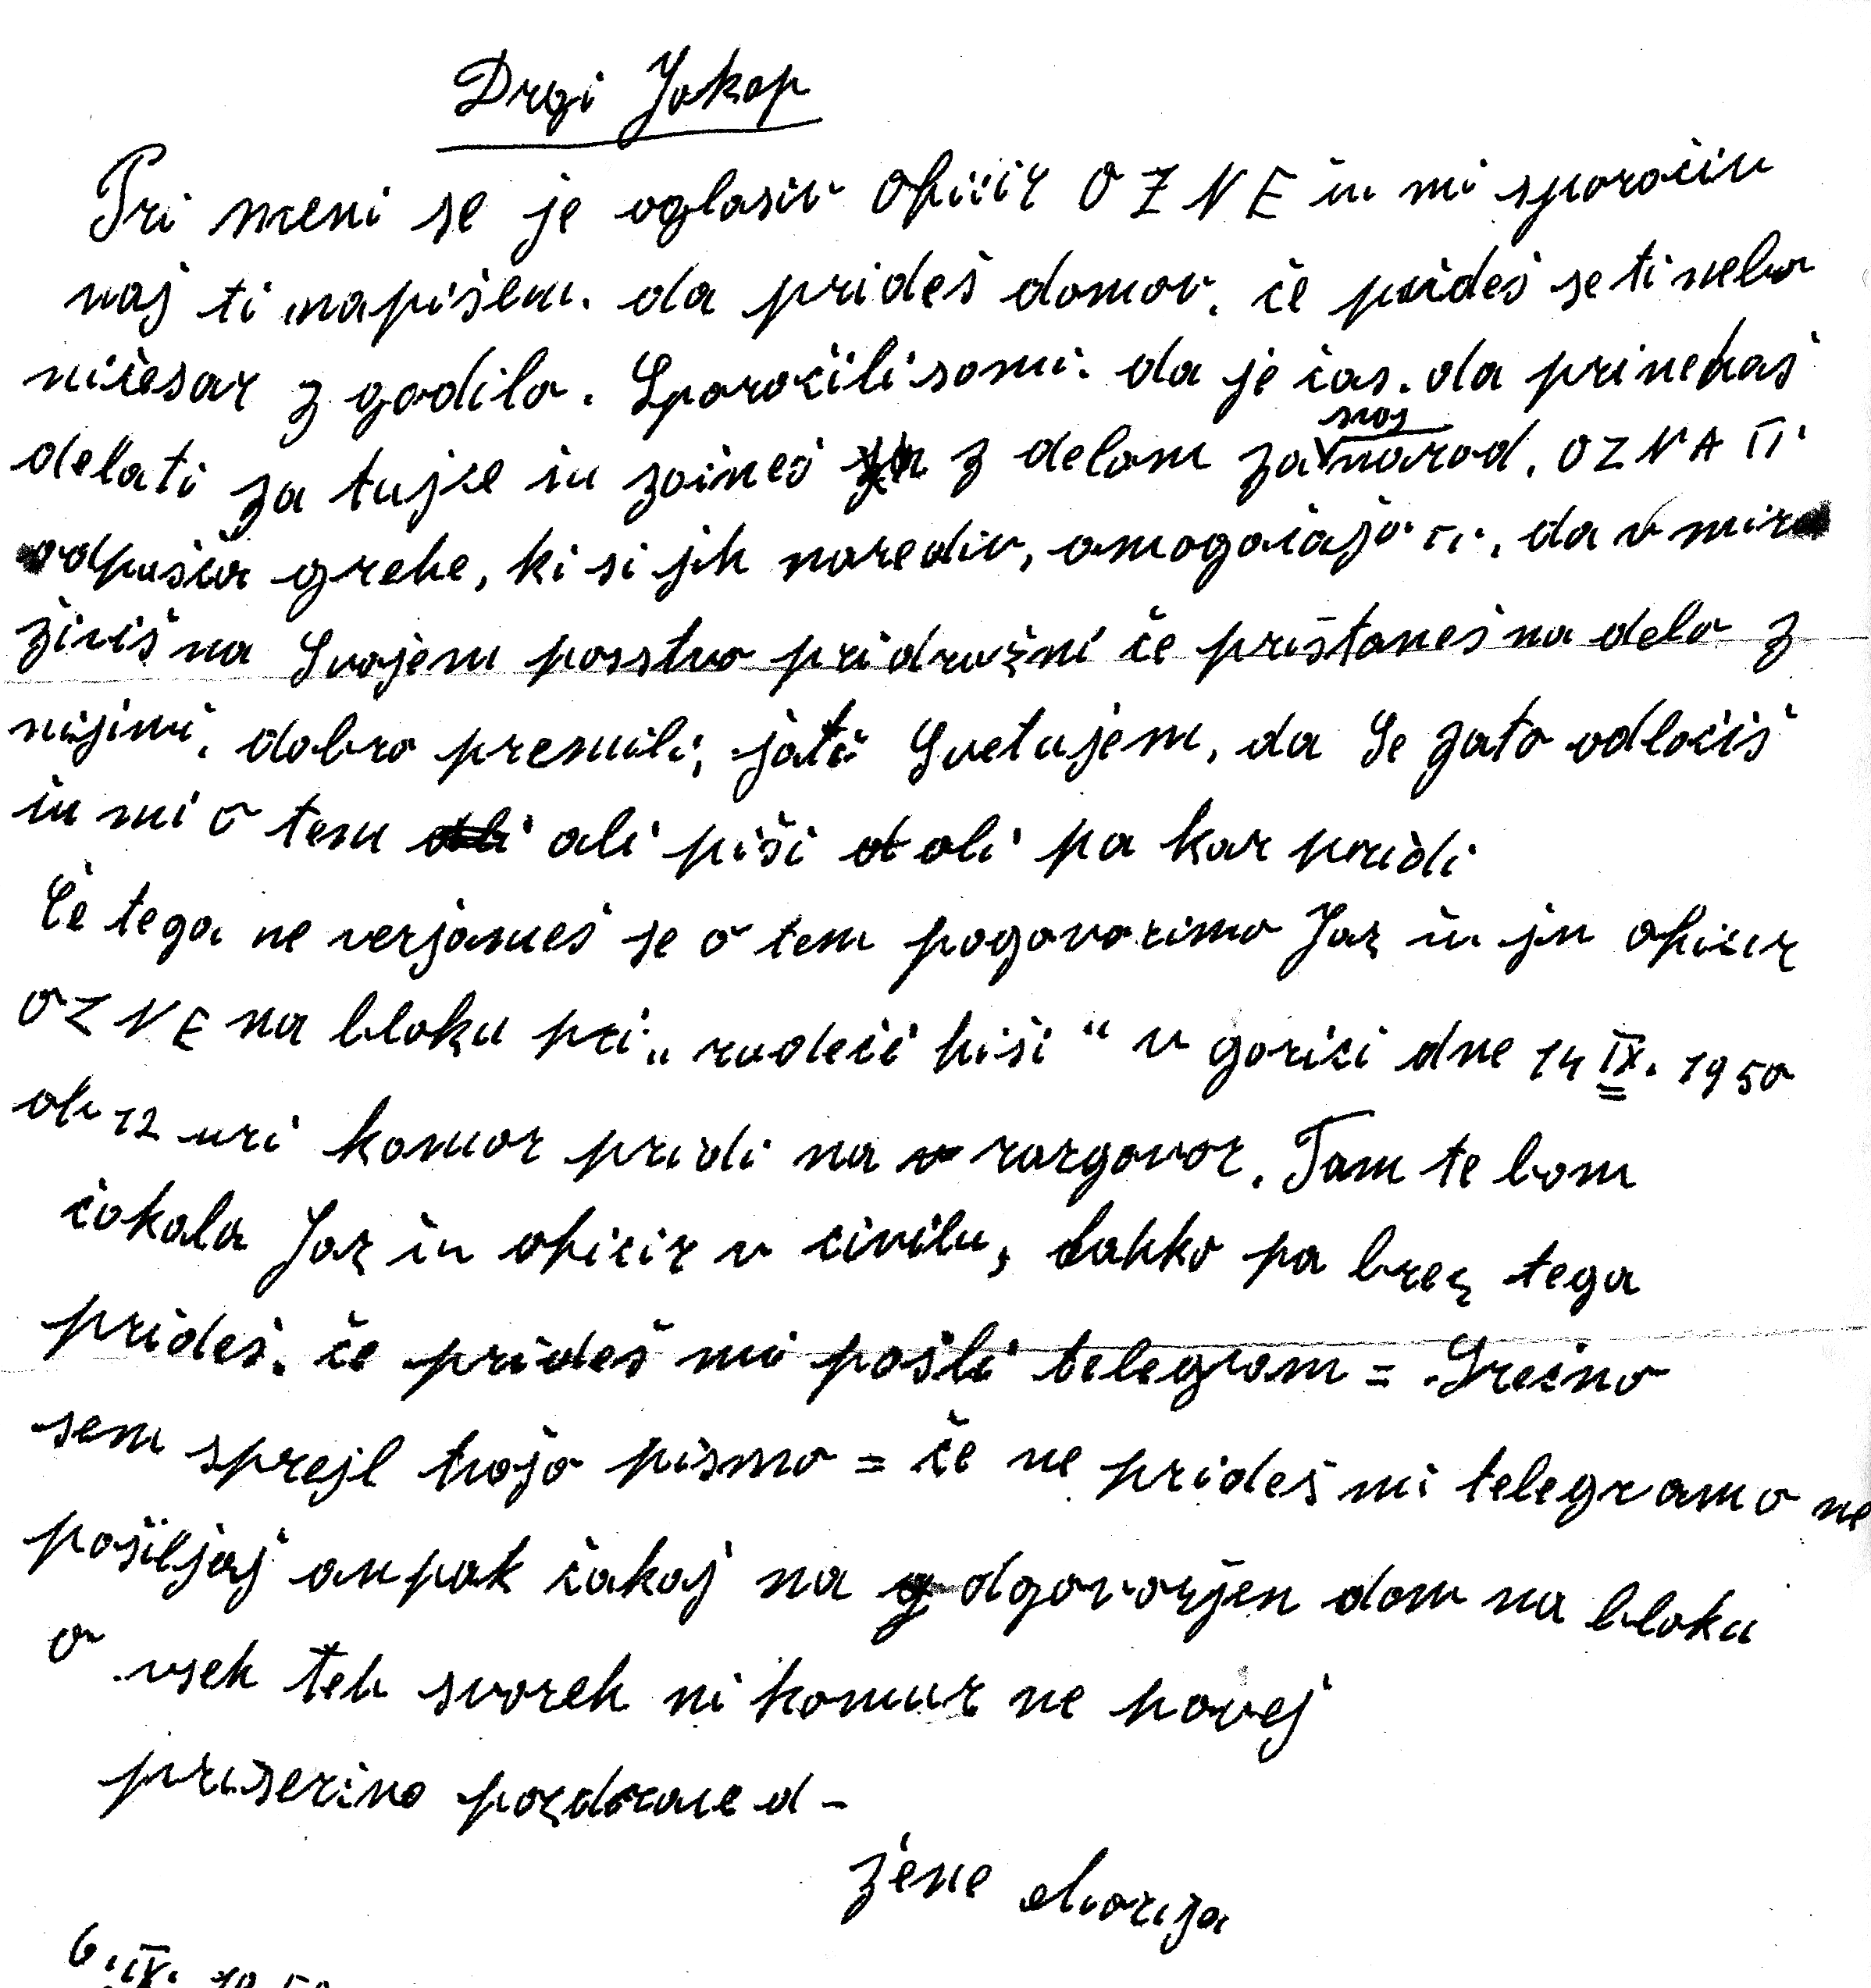 Drgi Jakop
Pri meni se je oglasiv oficir OZNE in mi sporočiv
naj ti napišem. da prideš domov. če prideš se ti nebo
ničesar z godilo. Sporočili so mi. da je čas. da prinehaš
delati za tujce in začneš z delom za svoj narod. OZNA TI
odpušča grehe, ki si jih narediv, omogočajo TI. da v miru
živiš na Svojem posstvo pri družni če prištaneš na delo z
njimi. dobro premili; jati Svetujem, da Se zato odločiš
in mi o tem ali piši ali pa kar pridi
Če tega ne verjameš se o tem pogovorimo Jaz in in oficir
OZNE na bloku pri „rudečii hiši“ v gorici dne 14 IX. 1950
ob 12 uri kamor pridi na razgovor. Tam te bom
čakala Jaz in oficir v civilu, Lahko pa brez tega
prideš. če prideš mi pošli telegram = Srečno
sem sprejl tvojo pismo = če ne prideš mi telegramo ne
pošiljaj ampak čakaj na dgovorjen dom na bloku
o vseh teh svoreh ni komur ne povej
priserčno pozdrave d-
žene Marija
6. IX. 1950